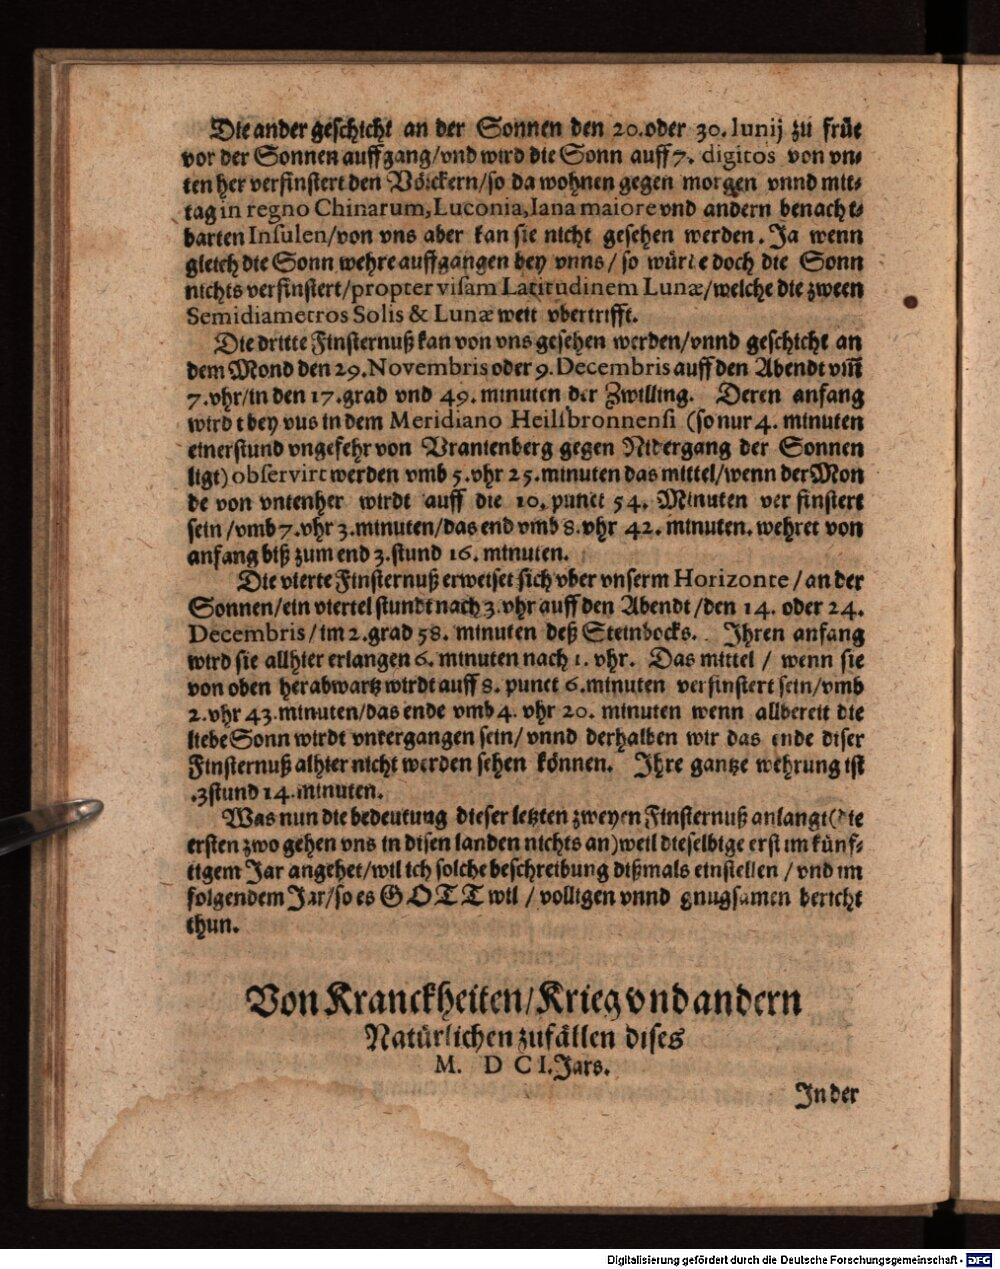 Die ander geschicht an der Sonnen den 20. oder 30. Iunij zu früe
vor der Sonnen auffgang/vnd wird die Sonn auff 7. digitos von vn-
ten her verfinstert den Völckern/so da wohnen gegen morgen vnnd mit-
tag in regno Chinarum, Luconia, Iana maiore vnd andern benacht-
barten Insulen/von vns aber kan sie nicht gesehen werden. Ja wenn
gleich die Sonn wehre auffgangen bey vnns/ so würde doch die Sonn
nichts verfinstert/propter visam Latitudinem Lunæ/welche die zween
Semidiametros Solis & Lunæ weit vbertrifft.
Die dritte Finsternuß kan von vns gesehen werden/vnnd geschicht an
dem Mond den 29. Novembris oder 9. Decembris auff den Abendt vm̃
7. vhr/in den 17. grad vnd 49. minuten der Zwilling. Deren anfang
wird t bey vns in dem Meridiano Heilsbronnensi (so nur 4. minuten
einer stund vngefehr von Vranienberg gegen Nidergang der Sonnen
ligt) observirt werden vmb 5. vhr 25. minuten das mittel/wenn der Mon
de von vntenher wirdt auff die 10. punct 54. Minuten verfinstert
sein/vmb 7. vhr 3. minuten/das end vmb 8. vhr 42. minuten. wehret von
anfang biß zum end 3. stund 16. minuten.
Die vierte Finsternuß erweiset sich vber vnserm Horizonte/an der
Sonnen/ein viertel stundt nach 3. vhr auff den Abendt/den 14. oder 24.
Decembris/im 2. grad 58. minuten deß Steinbocks. Ihren anfang
wird sie allhier erlangen 6. minuten nach 1. vhr. Das mittel / wenn sie
von oben herabwartz wirdt auff 8. punct 6. minuten verfinstert sein/vmb
2. vhr 43. minuten/das ende vmb 4. vhr 20. minuten wenn allbereit die
liebe Sonn wirdt vntergangen sein/ vnnd derhalben wir das ende diser
Finsternuß alhier nicht werden sehen können. Ihre gantze wehrung ist
.3 stund 14. minuten.
Was nun die bedeutung dieser letzten zweyen Finsternuß anlangt (die
ersten zwo gehen vns in disen landen nichts an) weil dieselbige erst im künf-
tigem Jar angehet/wil ich solche beschreibung dißmals einstellen / vnd im
folgendem Jar/so es GOTT wil / volligen vnnd gnugsamen bericht
thun.
Von Kranckheiten/Krieg vnd andern
Natürlichen zufällen dises
M. D C I. Jars.
In der
Digitalisierung gefördert durch die Deutsche Forschungsgemeinschaft - DFG